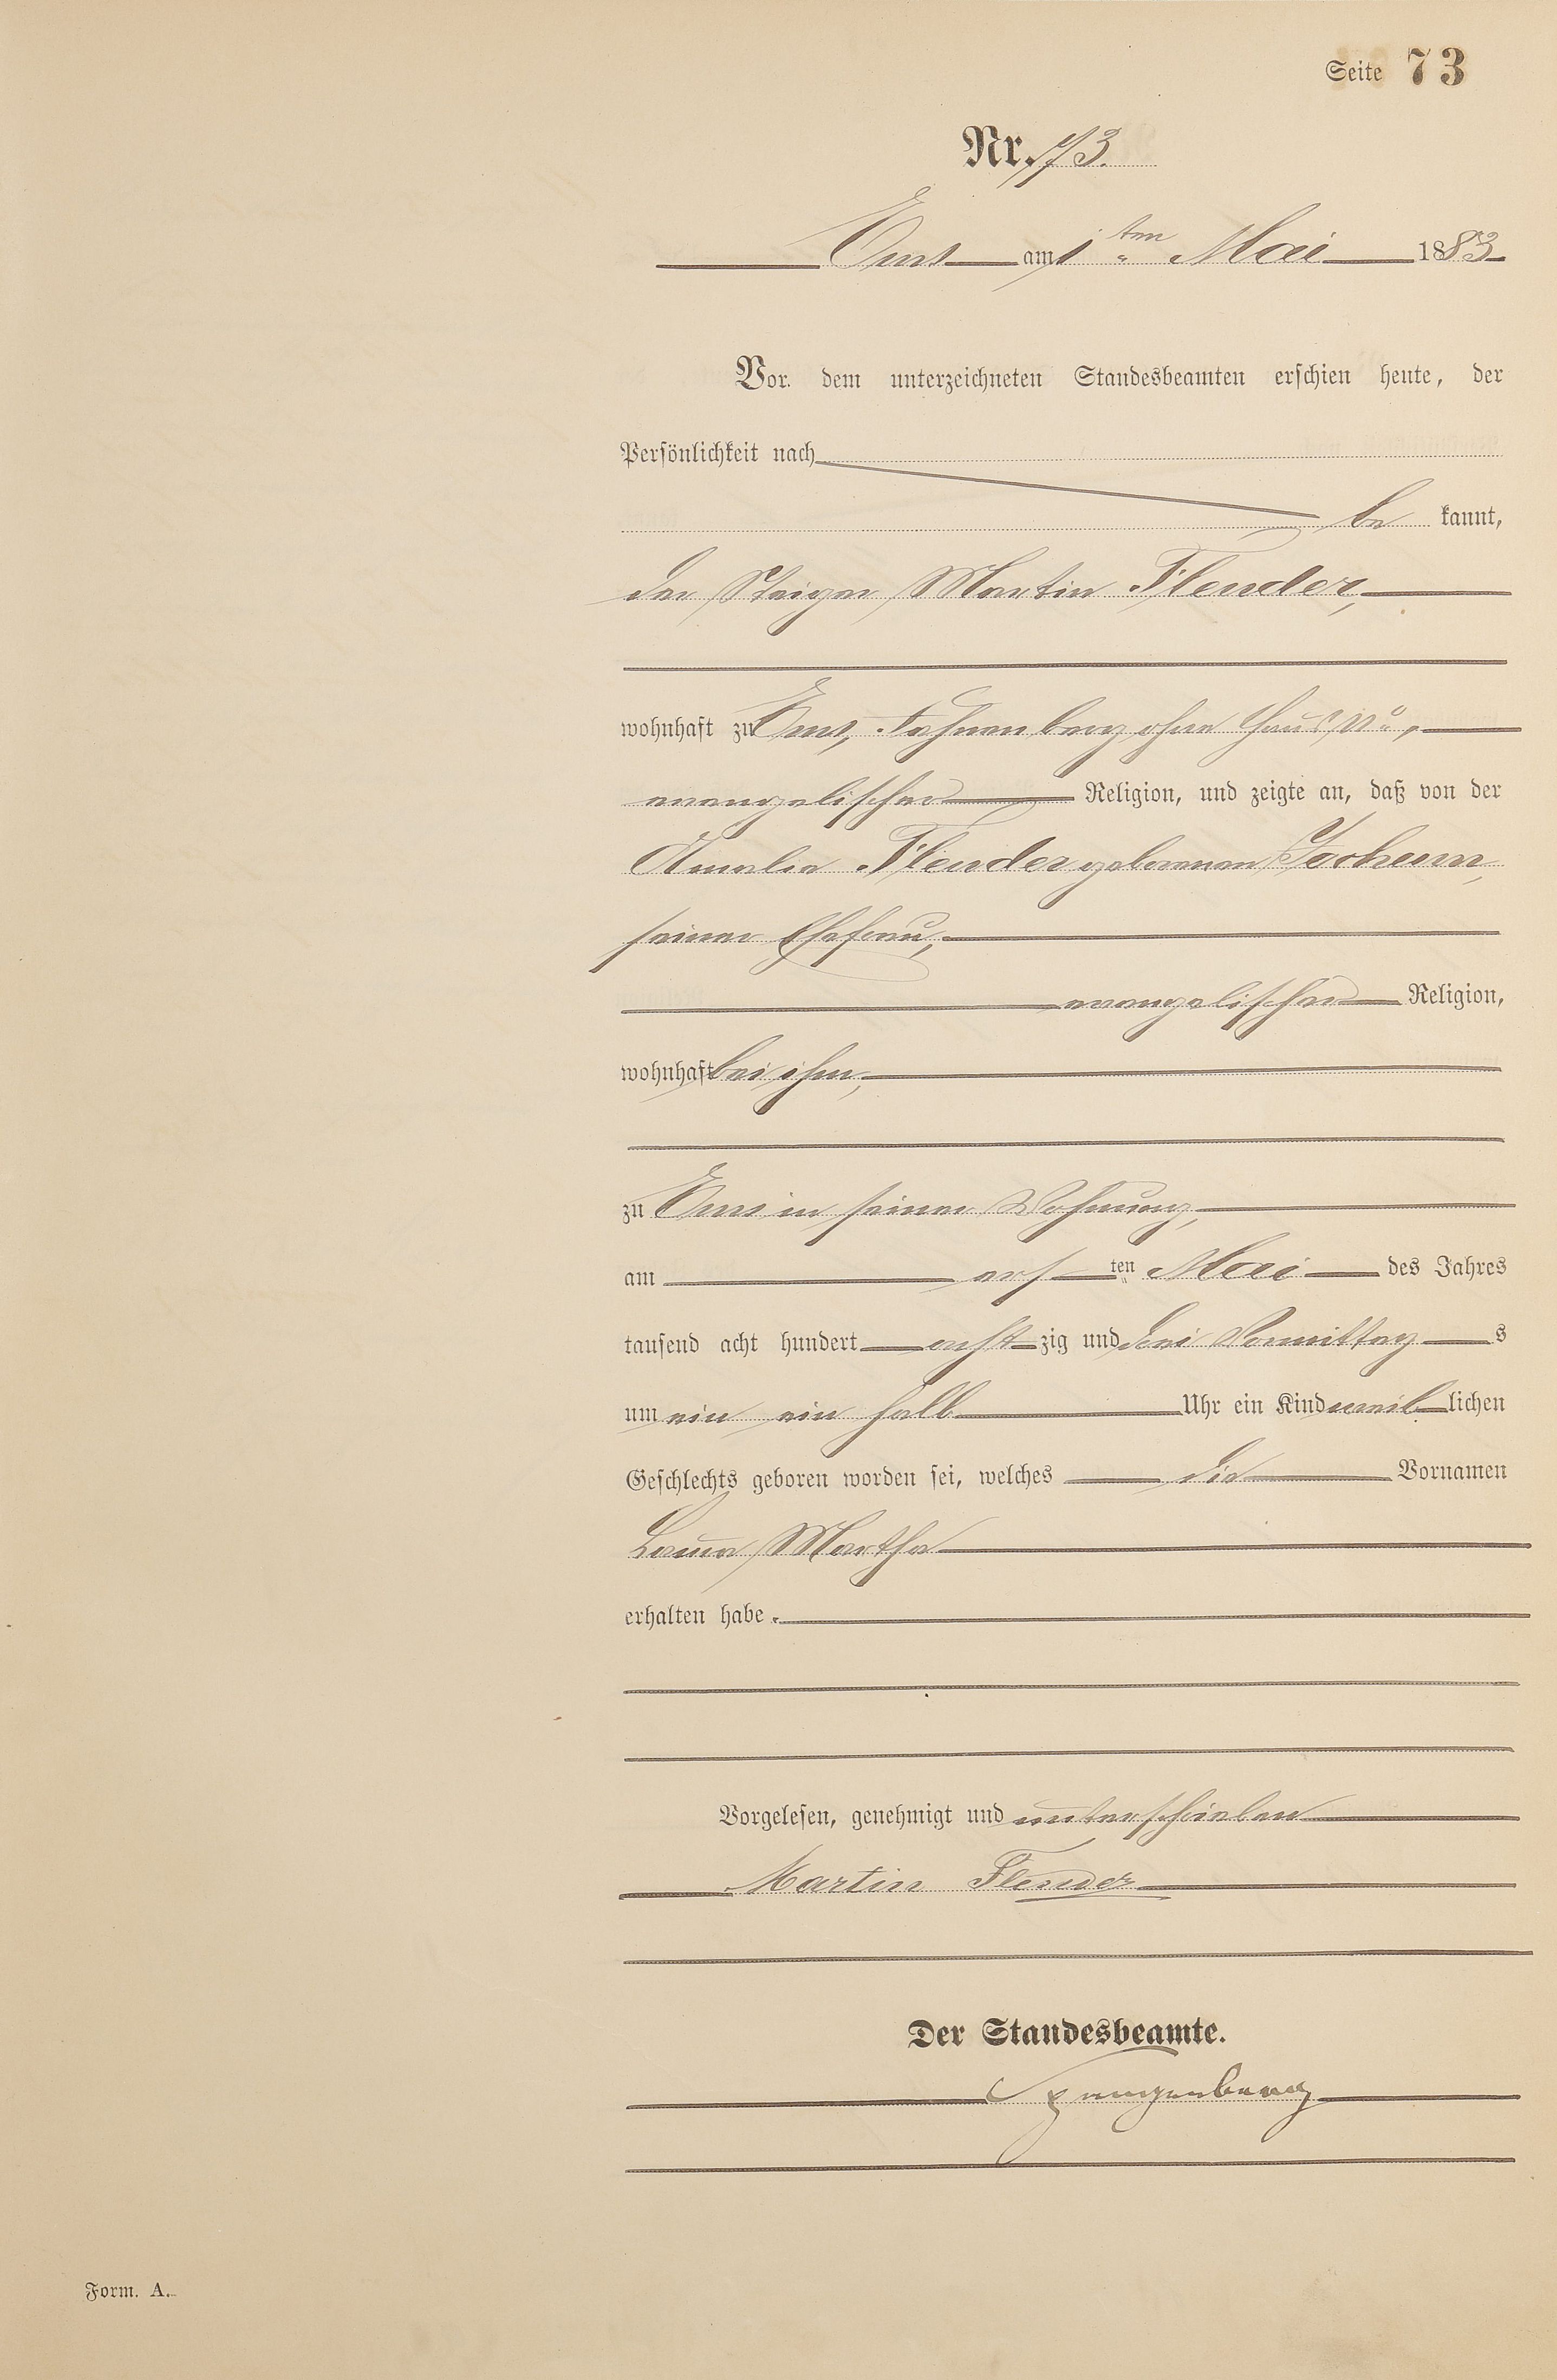 Seite 73
Nr. 73.
Ems am 1ten Mai 1883
Vor dem unterzeichneten Standesbeamten erschien heute, der
Persönlichkeit nach
be kannt,
der Steiger Martin Flender,
wohnhaft zu Ems, Fahnenberg ohne Haus No,
evangelischer Religion, und zeigte an, daß von der
Amalia Flender geborenen Jochum,
seiner Ehefrau,
evangelischer Religion,
wohnhaft bei ihm,
zu Ems in seiner Wohnung,
am ers ten Mai des Jahres
tausend acht hundert acht zig und drei Vormittag s
um ein ein halb Uhr ein Kind weib lichen
Geschlechts geboren worden sei, welches die Vornamen
Laura Martha
erhalten habe.
Vorgelesen, genehmigt und unterschrieben
Martin Flender
Der Standesbeamte.
Spangenberg
Form. A.